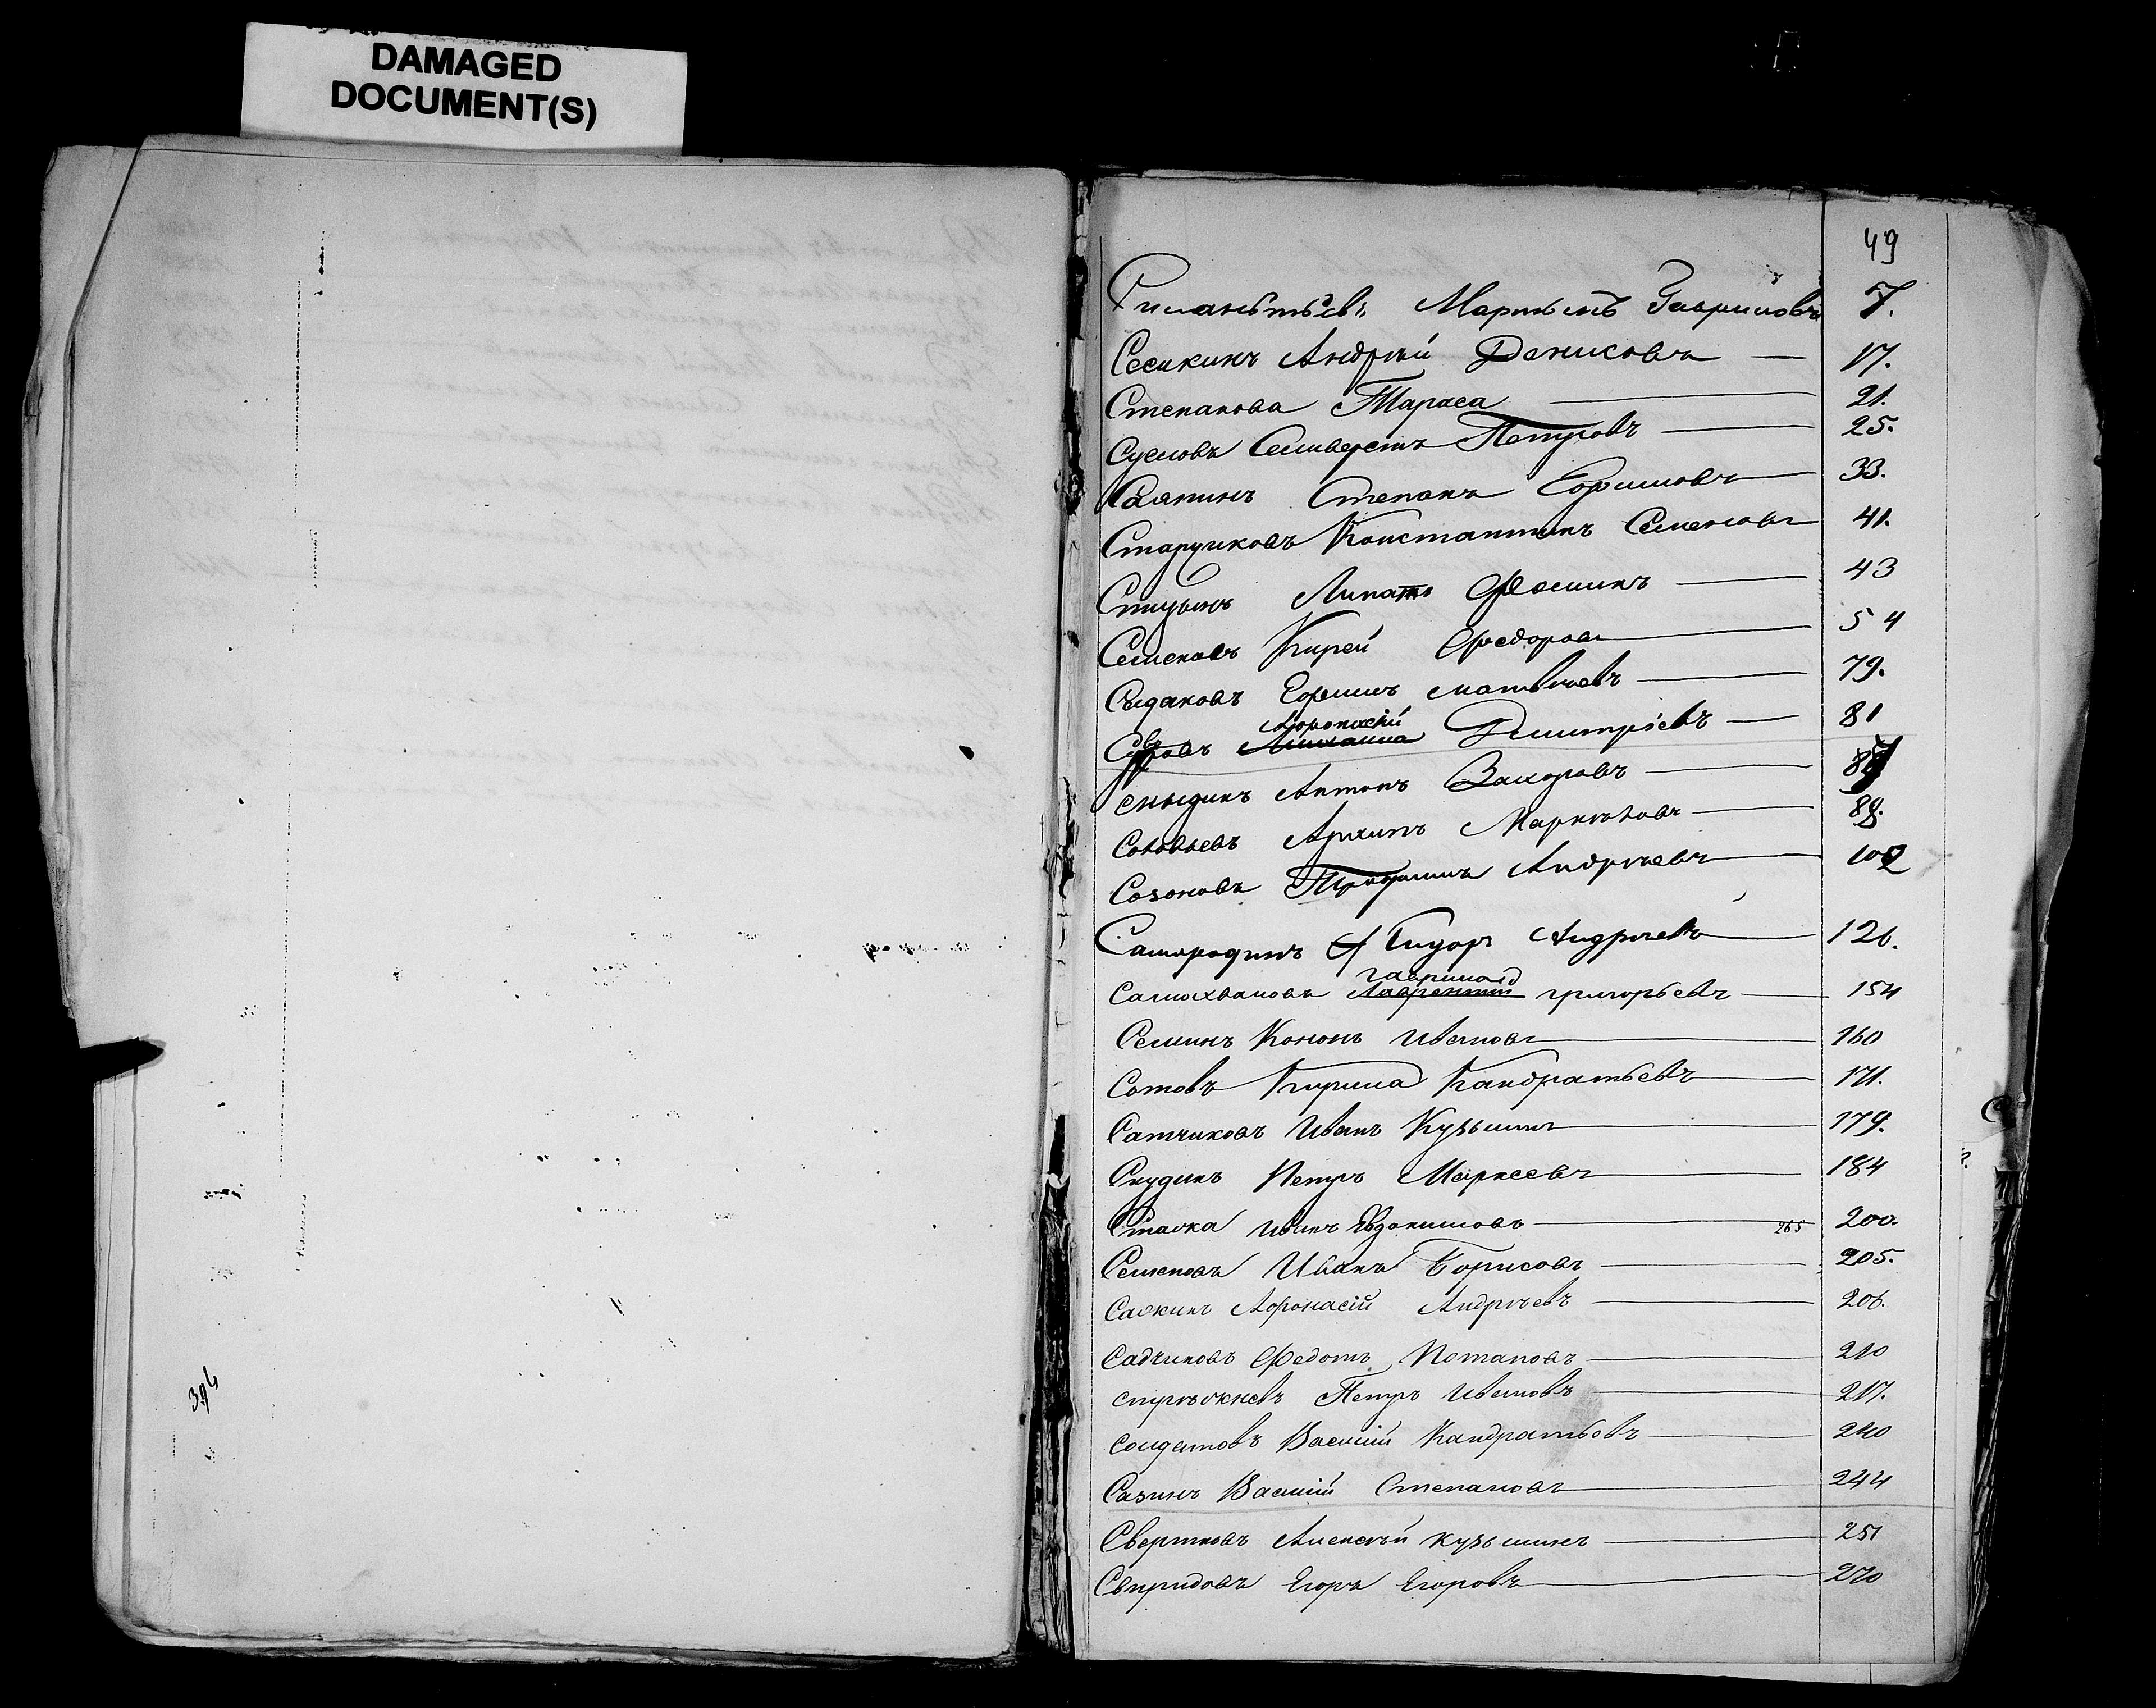 DAMAGED
DOCUMENT(S)
49
Силантьевъ Мартынъ Гавриловъ 7.
Сесикинъ Андрей Денисовъ — 17.
Степанова Тараса — 21.
Сусловъ Селиверстъ Петровъ — 25.
Саяпинъ Степанъ Ефимовъ — 33.
Старчиковъ Константинъ Семеновъ 41.
Липатъ Фоминъ — 43
Семеновъ Кирей Федоровъ — 54
Судаковъ Ефимъ Матвѣевъ — 79.
Афонасій
Дмитріевъ — 81
Антонъ Захаровъ —
Соловьевъ Архипъ Маркѣловъ — 88.
Созоновъ Трофимъ Андрѣевъ — 102
Самородинъ Сидоръ Андрѣевъ — 126.
гаврила
Самохваловъ Лаврентій григорьевъ — 154
Семинъ Кононъ Ивановъ — 160
Сотовъ Кирила Кандратьевъ — 171.
Сатчиковъ Иванъ Кузьминъ — 179.
Скудинъ Петръ Маркеевъ — 184
Иванъ Евдокимовъ — 265 200.
Семеновъ Иванъ Борисовъ — 205.
Саякинъ Афонасій Андрѣевъ — 206.
Садчиковъ Федотъ Потаповъ — 210
Петръ Ивановъ — 217.
Солдатовъ Василій Кандратьевъ — 240
Сазинъ Василій Степановъ — 244
Свертковъ Алексѣй Кузьминъ — 251
Свиридовъ Егоръ Егоровъ — 270
394